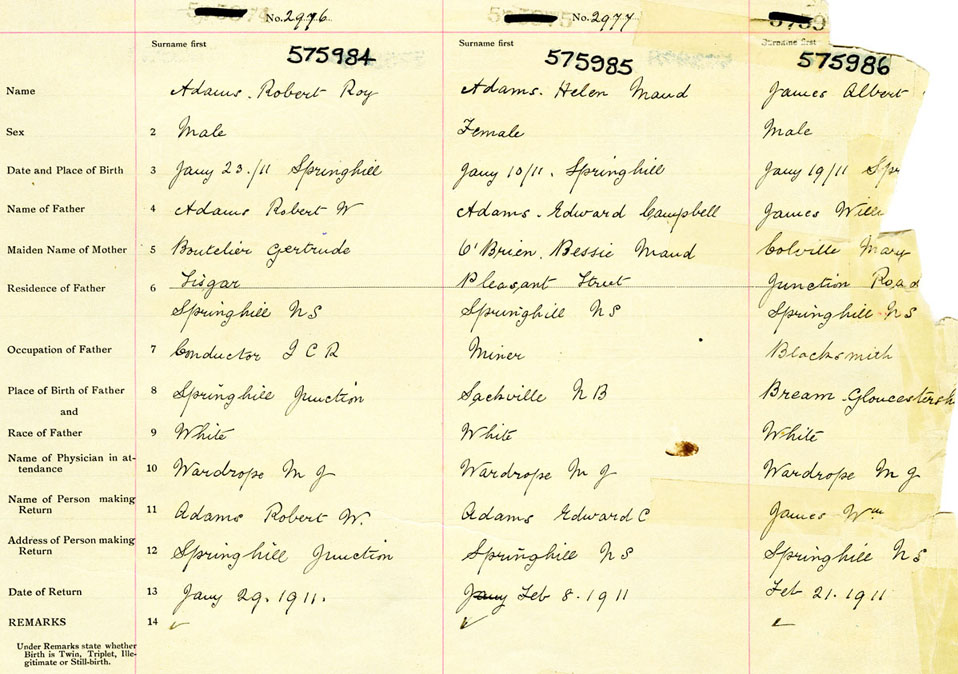 No. 2976 No. 2977
Surname first Surname first Surname first
575984 575985 575986
Name Adams. Robert Roy Adams. Helen Maud James Albert
Sex 2 Male Female Male
Date and Place of Birth 3 Jany 23./11 Springhill Jany 10/11. Springhill Jany 19/11 Spr
Name of Father 4 Adams Robert W Adams. Edward Campbell James Will
Maiden Name of Mother 5 Boutelier Gertrude O'Brien. Bessie Maud Colville Mary
Residence of Father 6 Lisgar Pleasant Street Junction Road
Springhill NS Springhill NS Springhill NS
Occupation of Father 7 Conductor I C R Miner Blacksmith
Place of Birth of Father 8 Springhill Junction Sackville N B Bream Gloucestersh
and
Race of Father 9 White White White
Name of Physician in at-
tendance 10 Wardrope M J Wardrope M J Wardrope M J
Name of Person making
Return 11 Adams Robert W. Adams Edward C James Wm
Address of Person making
Return 12 Springhill Junction Springhill NS Springhill NS
Date of Return 13 Jany 29. 1911. Jany Feb 8. 1911 Feb 21. 1911
REMARKS 14
Under Remarks state whether
Birth is Twin, Triplet, Ille-
gitimate or Still-birth.